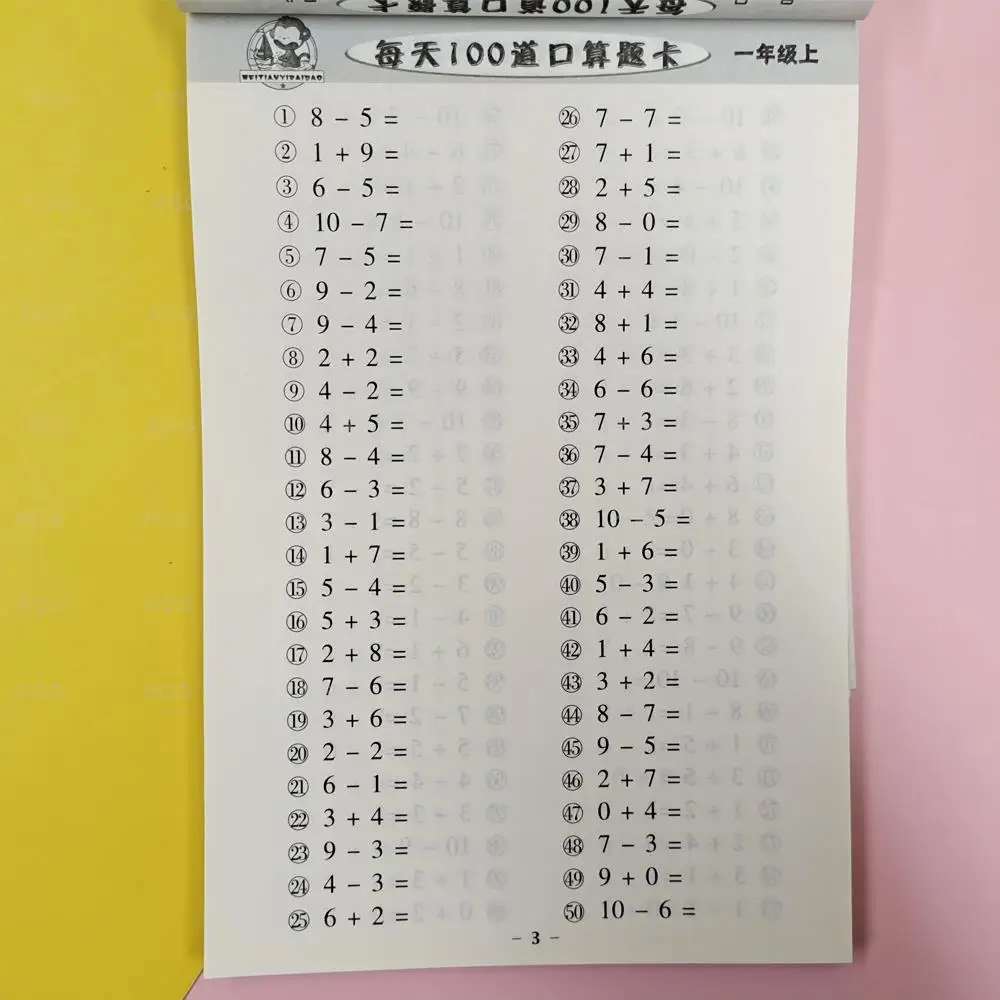 每天100道口算题卡
MEITIANYIDAIBAO
每天100道口算题卡
一年级上
① 8 - 5 =
② 1 + 9 =
③ 6 - 5 =
④ 10 - 7 =
⑤ 7 - 5 =
⑥ 9 - 2 =
⑦ 9 - 4 =
⑧ 2 + 2 =
⑨ 4 - 2 =
⑩ 4 + 5 =
⑪ 8 - 4 =
⑫ 6 - 3 =
⑬ 3 - 1 =
⑭ 1 + 7 =
⑮ 5 - 4 =
⑯ 5 + 3 =
⑰ 2 + 8 =
⑱ 7 - 6 =
⑲ 3 + 6 =
⑳ 2 - 2 =
㉑ 6 - 1 =
㉒ 3 + 4 =
㉓ 9 - 3 =
㉔ 4 - 3 =
㉕ 6 + 2 =
㉖ 7 - 7 =
㉗ 7 + 1 =
㉘ 2 + 5 =
㉙ 8 - 0 =
㉚ 7 - 1 =
㉛ 4 + 4 =
㉜ 8 + 1 =
㉝ 4 + 6 =
㉞ 6 - 6 =
㉟ 7 + 3 =
㊱ 7 - 4 =
㊲ 3 + 7 =
㊳ 10 - 5 =
㊴ 1 + 6 =
㊵ 5 - 3 =
㊶ 6 - 2 =
㊷ 1 + 4 =
㊸ 3 + 2 =
㊹ 8 - 7 =
㊺ 9 - 5 =
㊻ 2 + 7 =
㊼ 0 + 4 =
㊽ 7 - 3 =
㊾ 9 + 0 =
㊿ 10 - 6 =
- 3 -